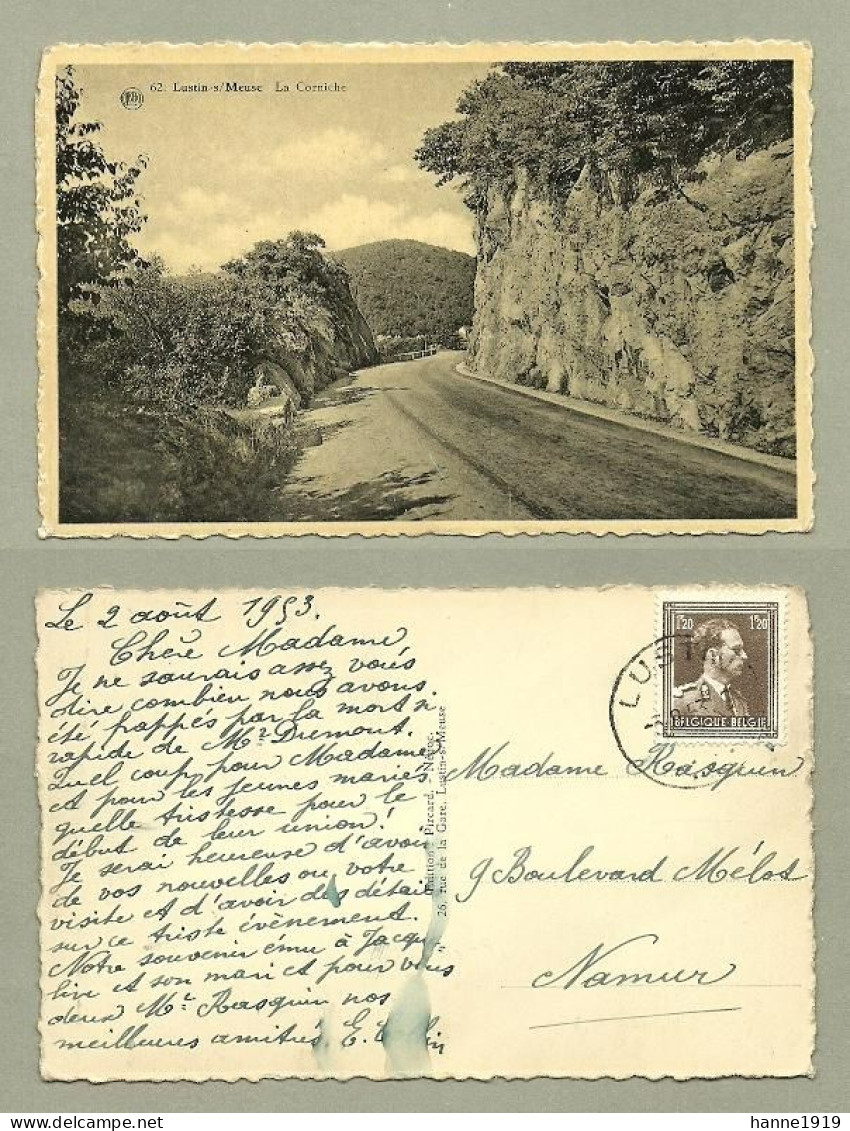 62. Lustin-s/Meuse La Corniche
Le 2 août 1953.
Chère Madame
Je ne saurais assez vous
dire combien nous avons
été frappés par la mort si
rapide de Mr Dremont.
Quel coup pour Madame,
et pour les jeunes mariés
quelle tristesse pour le
début de leur union!
Je serai heureuse d'avoir
de vos nouvelles ou votre
visite et d'avoir des détails
sur ce triste évènement.
Notre souvenir ému à Jacque
line et son mari et pour vous
deux Mr Rasquin nos
meilleures amitiés. E.
Edition: Pircard,
26, rue de la Gare, Lustin-s/Meuse
1F20 1F20
BELGIQUE BELGIE
LUSTIN
Madame Rasquin
9 Boulevard Mélot
Namur
hanne1919